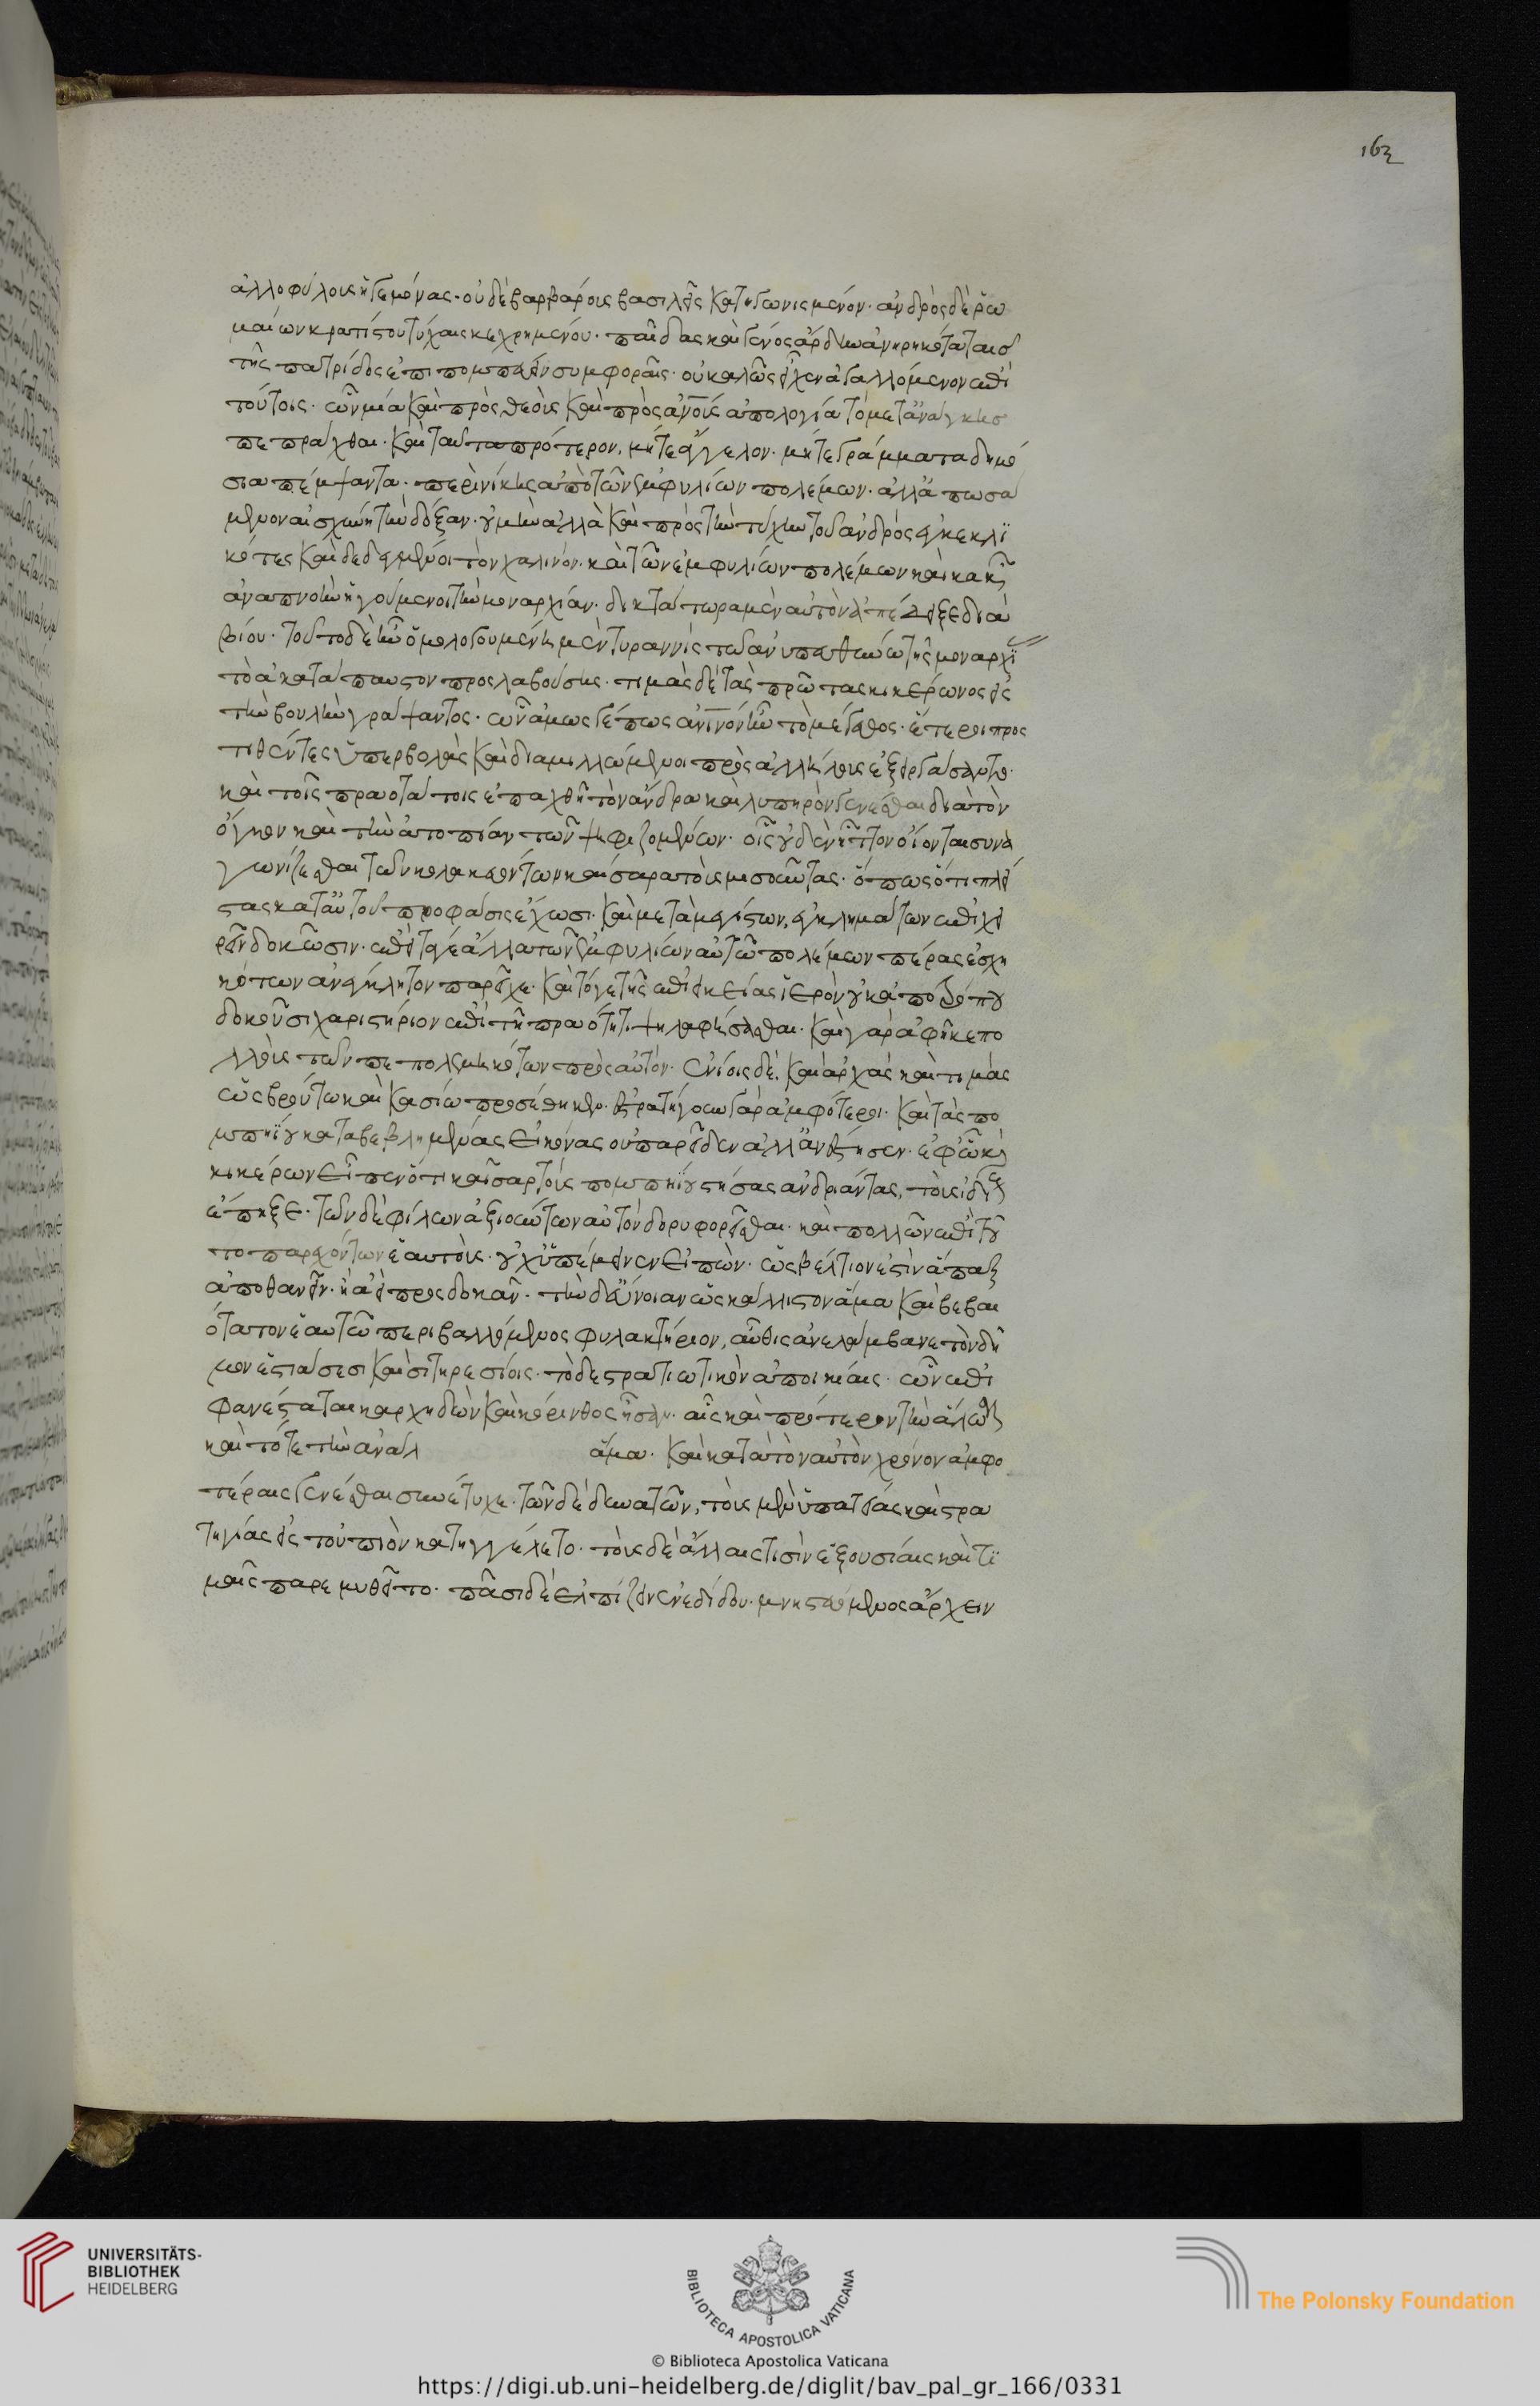 163
ἀλλοφύλους ἡγεμόνας· οὐδὲ βαρβάρους βασιλεῖς κατηγωνισμένον· ἀνδρὸς δὲ ῥω
μαίων κρατίστου τύχαις κεχρημένου· παῖδας καὶ γένος ἄρδην ἀνηρηκότα ταῖσ
τῆς πατρίδος ἐπιπομπεύειν συμφοραῖς· οὐ καλῶς εἶχεν ἀγαλλόμενον ἐπὶ
τούτοις· ὧν μία καὶ πρὸς θεοὺς καὶ πρὸς ἀνους ἀπολογία τὸ μετ' ἀνάγκησ
πεπρᾶχθαι· καὶ ταῦτα πρότερον, μήτε ἄγγελον· μήτε γράμματα δημό
σια πέμψαντα· περὶ νίκης ἀπὸ τῶν ἐμφυλίων πολέμων· ἀλλ' ἀπωσά
μενον αἰσχύνη τὴν δόξαν· οὐ μὴν ἀλλὰ καὶ πρὸς τὴν τύχην τοῦ ἀνδρὸς ἐγκεκλι
κότες καὶ δεδεγμένοι τὸν χαλινόν· καὶ τῶν ἐμφυλίων πολέμων καὶ κακῶν
ἀναπνοὴν ἡγούμενοι τὴν μοναρχίαν· δικτάτωρα μὲν αὐτὸν ἀπέδειξε διὰ
βίου· τοῦτο δὲ ἦν ὁμολογουμένη μὲν τυραννὶς τῶ ἀνυπευθύνω τῆς μοναρχί
τὸ ἀκατάπαυστον προσλαβούσης· τιμὰς δὲ τὰς πρώτας κικέρωνος εἰς
τὴν βουλὴν γράψαντος· ὧν ἁμῶς γέ πως ἀνινον ἦν τὸ μέγεθος· ἕτεροι προσ
τιθέντες ὑπερβολὰς καὶ διαμιλλώμενοι πρὸς ἀλλήλους ἐξειργάσαντο·
καὶ τοῖς πραοτάτοις ἐπαχθῆ τὸν ἄνδρα καὶ λυπηρὸν γενέσθαι διὰ τὸν
ὄγκον καὶ τὴν ἀτοπίαν τῶν ψηφιζομένων· οἷς οὐδὲν ἧττον οἴονται συνα
γωνίζεσθαι τῶν κολακευόντων καίσαρα τοὺς μισοῦντας· ὅπως ὅτι πλεί
στας κατ' αὐτοῦ προφάσεις ἔχωσι· καὶ μετὰ μεγίστων, ἐγκλημάτων ἐπιχει
ρεῖν δοκῶσιν· ἐπεὶ τά γε ἄλλα τῶν ἐμφυλίων αὐτῶ πολέμων πέρας ἐσχη
κότων ἀνέγκλητον παρεῖχε· καὶ τό γε τῆς ἐπιεικείας ἱερὸν οὐκ ἀπὸ τρόπου
δοκοῦσι χαριστήριον ἐπὶ τῆ πραότητι ψηφίσασθαι· καὶ γὰρ ἀφῆκε πο
λλοὺς τῶν πεπολεμηκότων πρὸς αὐτόν· ἐνίοις δὲ, καὶ ἀρχὰς καὶ τιμάς
ὡς βρούτω καὶ κασίω προσέθηκεν· ἐστρατήγουν γὰρ ἀμφότεροι· καὶ τὰς πο
μπηίου καταβεβλημένας εἰκόνας οὐ παρεῖδεν ἀλλ' ἀνέστησεν· ἐφ' ὧ καὶ
κικέρων εἶπεν ὅτι καῖσαρ τοὺς πομπηίου στήσας ἀνδριάντας, τοὺς ἰδίους
ἔπηξε· τῶν δὲ φίλων ἀξιούντων αὐτὸν δορυφορεῖσθαι· καὶ πολλῶν ἐπὶ τοῦ
το παρεχόντων ἑαυτοὺς· οὐχ ὑπέμεινεν εἰπὼν· ὡς βέλτιόν ἐστιν ἅπαξ
ἀποθανεῖν· ἢ ἀεὶ προσδοκᾶν· τὴν δ' εὔνοιαν ὡς κάλλιστον ἅμα καὶ βεβαι
ότατον ἑαυτῶ περιβαλλόμενος φυλακτήριον, αὖθις ἀνελάμβανε τὸν δῆ
μον ἑστιάσεσι καὶ σιτηρεσίοις· τὸ δὲ στρατιωτικὸν ἀποικίαις· ὧν ἐπι
φανέσταται καρχηδὼν καὶ κόρινθος ἦσαν· αἷς καὶ πρότερον τὴν ἅλωσιν
καὶ τότε τὴν ἀναλ ἅμα· καὶ κατὰ τὸν αὐτὸν χρόνον ἀμφο
τέραις γενέσθαι συνέτυχε· τῶν δὲ δυνατῶν, τοῖς μὲν ὑπατείας καὶ στρα
τηγίας εἰς τοὐπιὸν κατηγγέλετο· τοὺς δὲ ἄλλαις τισὶν ἐξουσίαις καὶ τι
μαῖς παρεμυθεῖτο· πᾶσι δὲ ἐλπίζειν ἐνεδίδου· μνηστευόμενος ἄρχειν
UNIVERSITÄTS-
BIBLIOTHEK
HEIDELBERG
BIBLIOTECA APOSTOLICA VATICANA
The Polonsky Foundation
© Biblioteca Apostolica Vaticana
https://digi.ub.uni-heidelberg.de/diglit/bav_pal_gr_166/0331